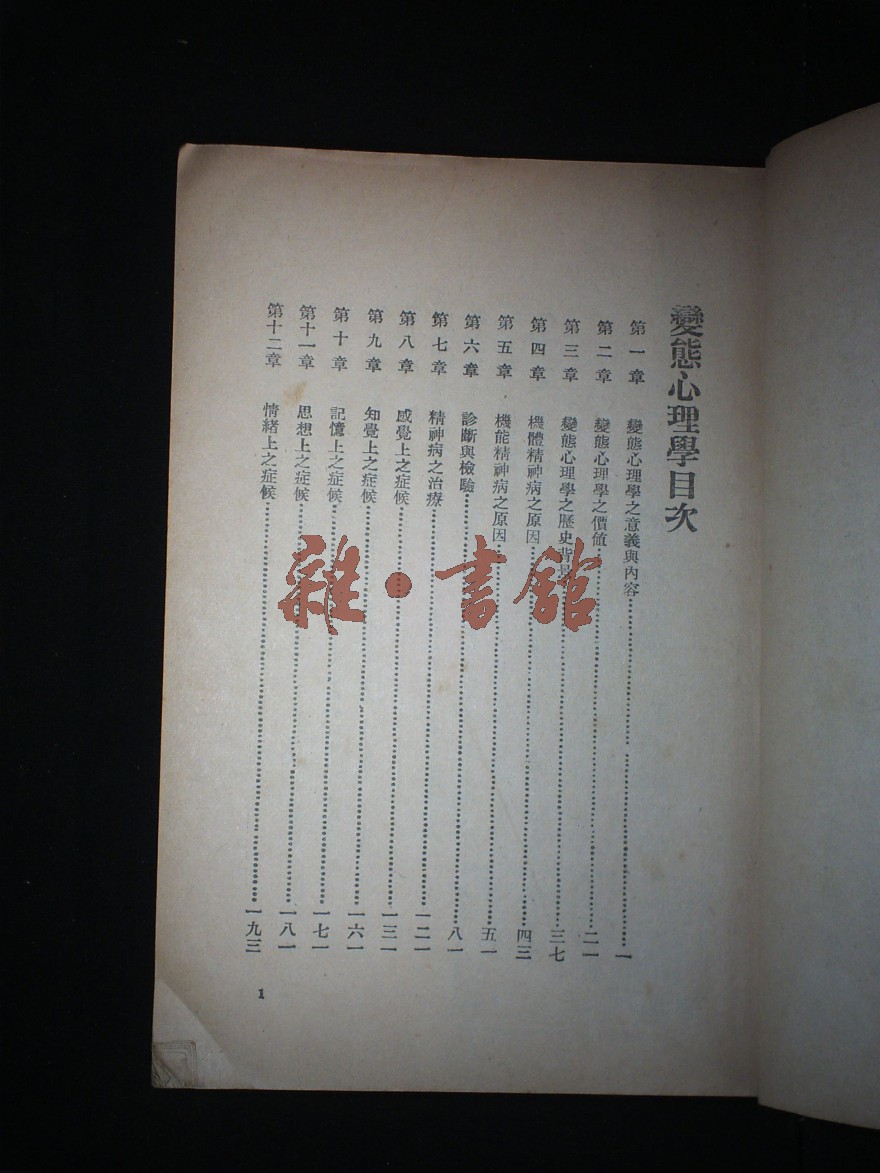 變態心理學目次
第一章 變態心理學之意義與內容……一
第二章 變態心理學之價値……二一
第三章 變態心理學之歷史背……三七
第四章 機體精神病之原因……四三
第五章 機能精神病之原因……五一
第六章 診斷與檢驗……八一
第七章 精神病之治療……一二一
第八章 感覺上之症候……一三一
第九章 知覺上之症候……一六一
第十章 記憶上之症候……一七一
第十一章 思想上之症候……一八一
第十二章 情緒上之症候……一九三
1
雜·書館